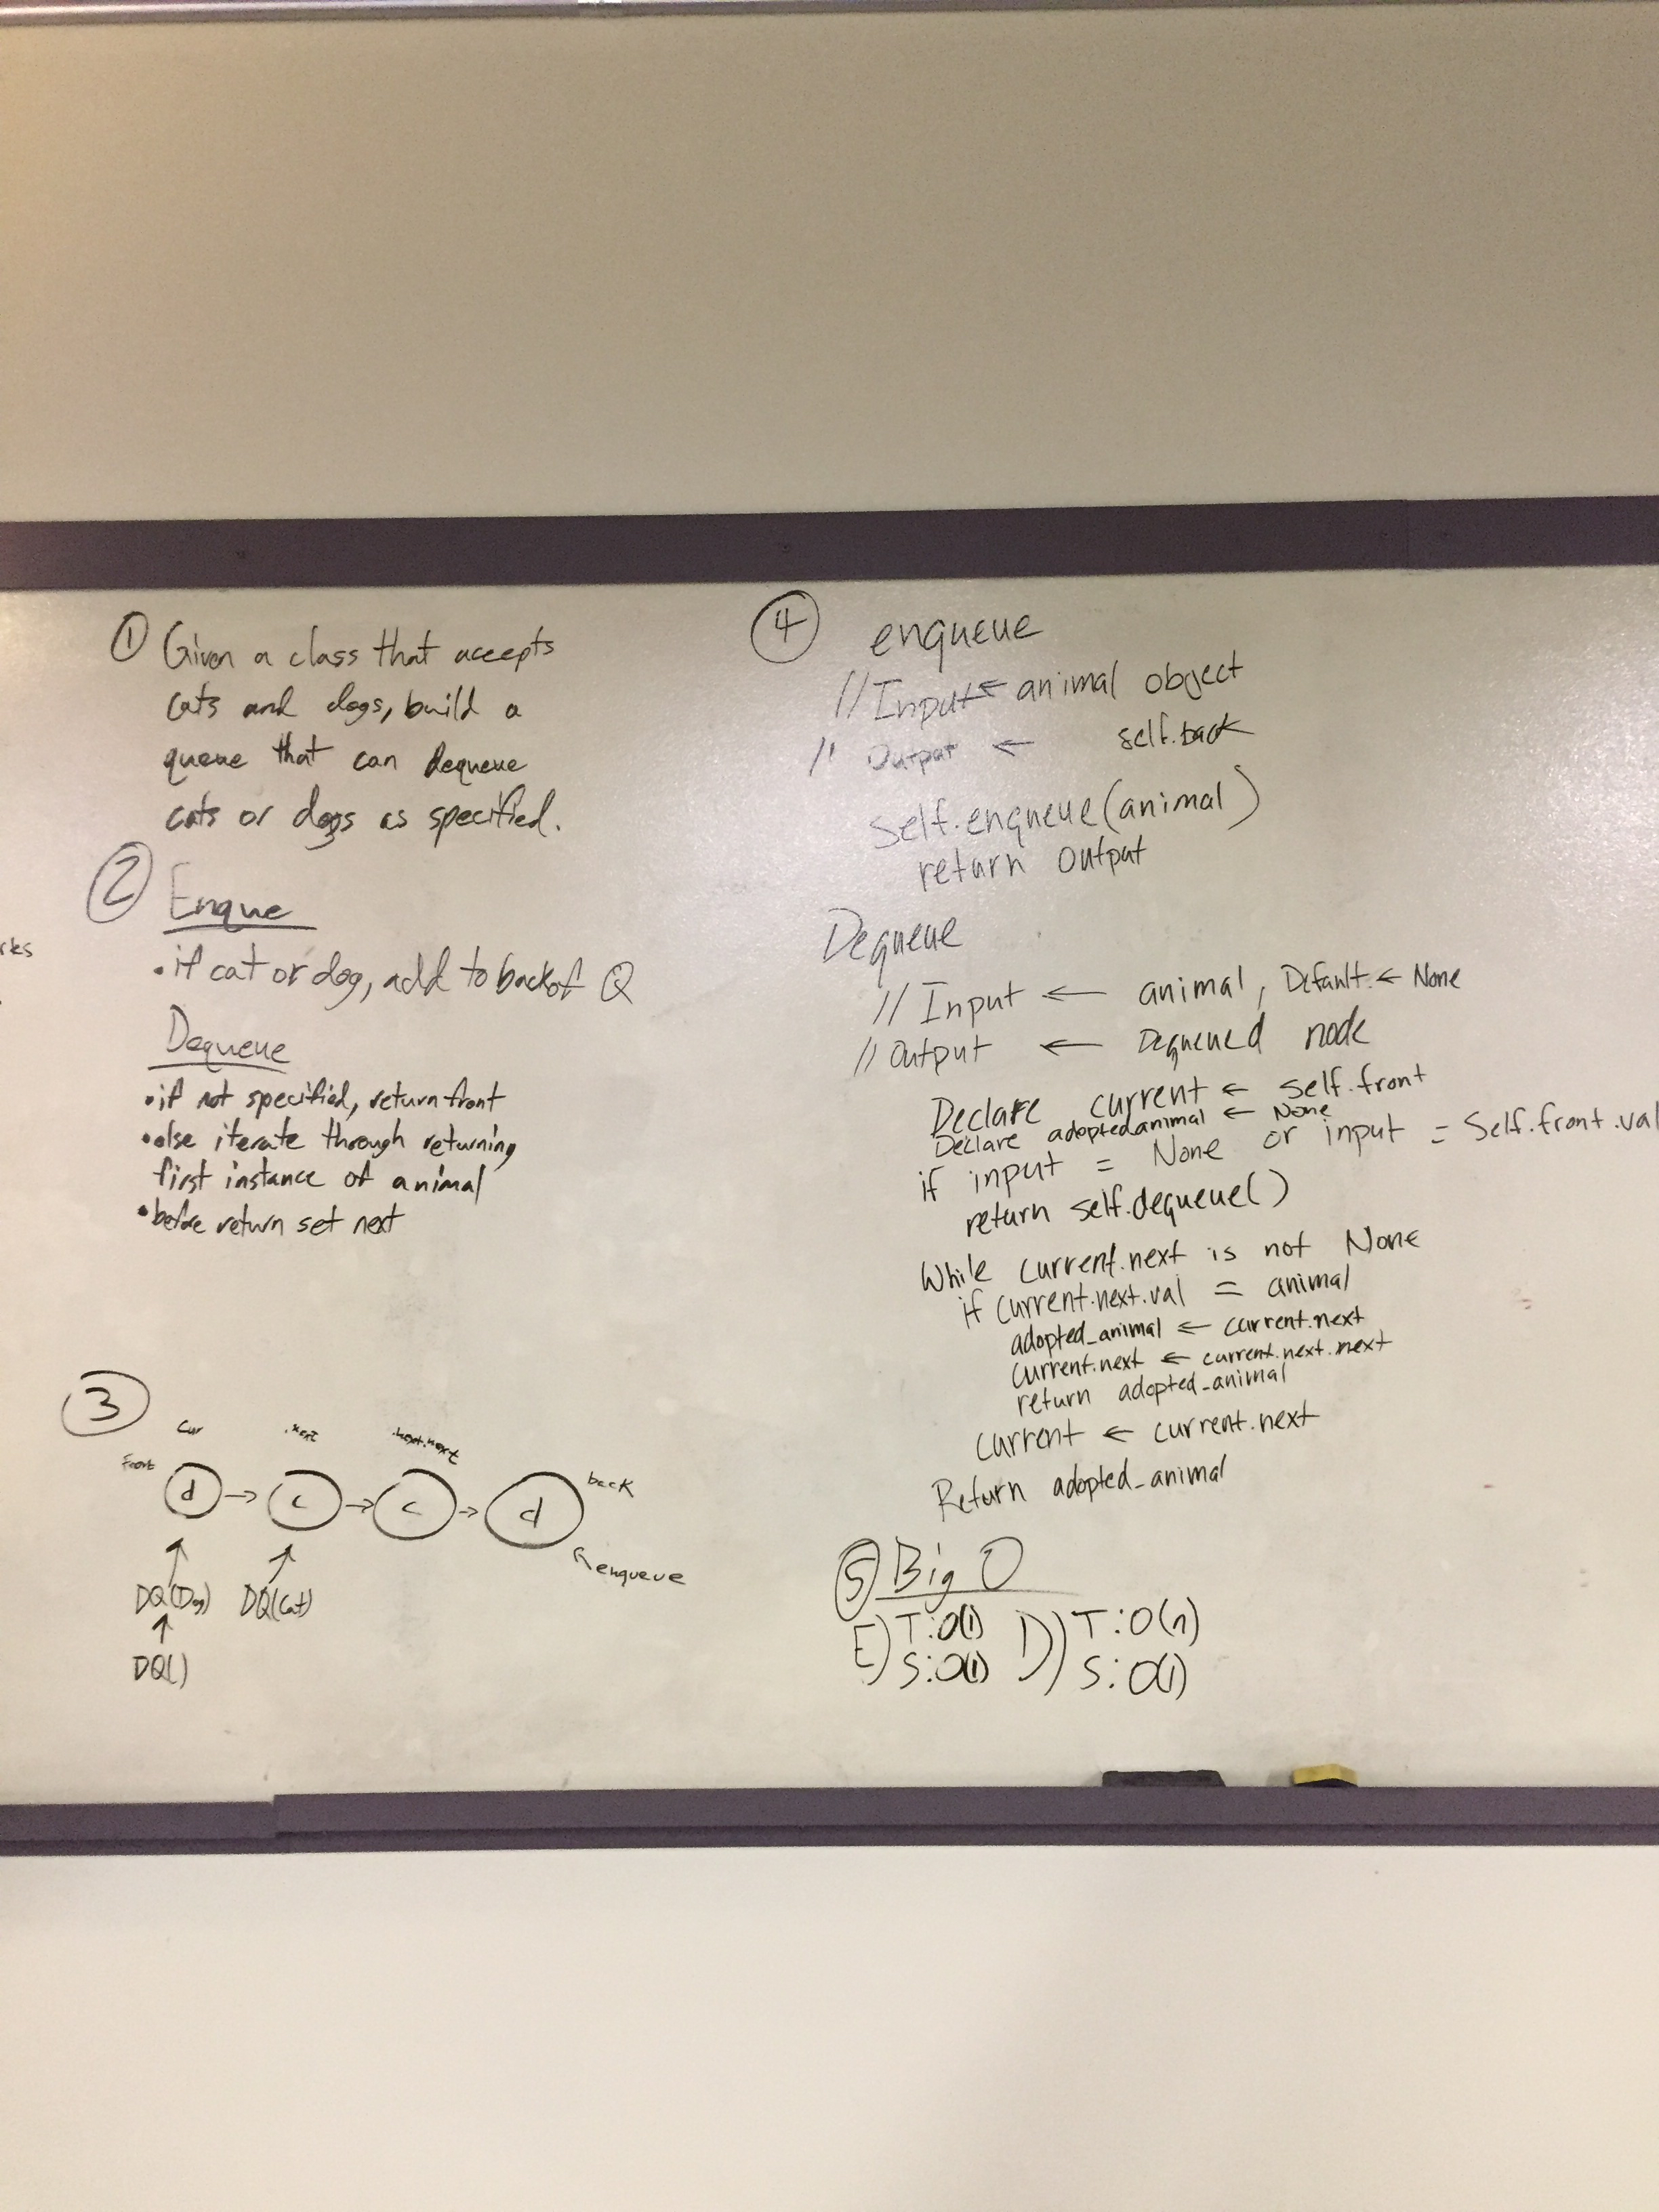 ① Given a class that accepts
cats and dogs, build a
queue that can dequeue
cats or dogs as specified.
② Enque
• if cat or dog, add to back of Q
Dequeue
• if not specified, return front
• else iterate through returning
first instance of animal
• before return set next
③
cur .next .next.next
front d → c → c → d back
enqueue
DQ(Dog) DQ(Cat)
DQ()
rks
④ enqueue
// Input ← animal object
// Output ← self.back
Self.enqueue(animal)
return output
Dequeue
// Input ← animal, Default ← None
// Output ← Dequeued node
Declare current ← self.front
Declare adoptedanimal ← None
if input = None or input = Self.front.val
return self.dequeue()
While current.next is not None
if current.next.val = animal
adopted_animal ← current.next
current.next ← current.next.next
return adopted_animal
current ← current.next
Return adopted_animal
⑤ Big O
E) T:O(1) D) T:O(n)
S:O(1) S:O(1)